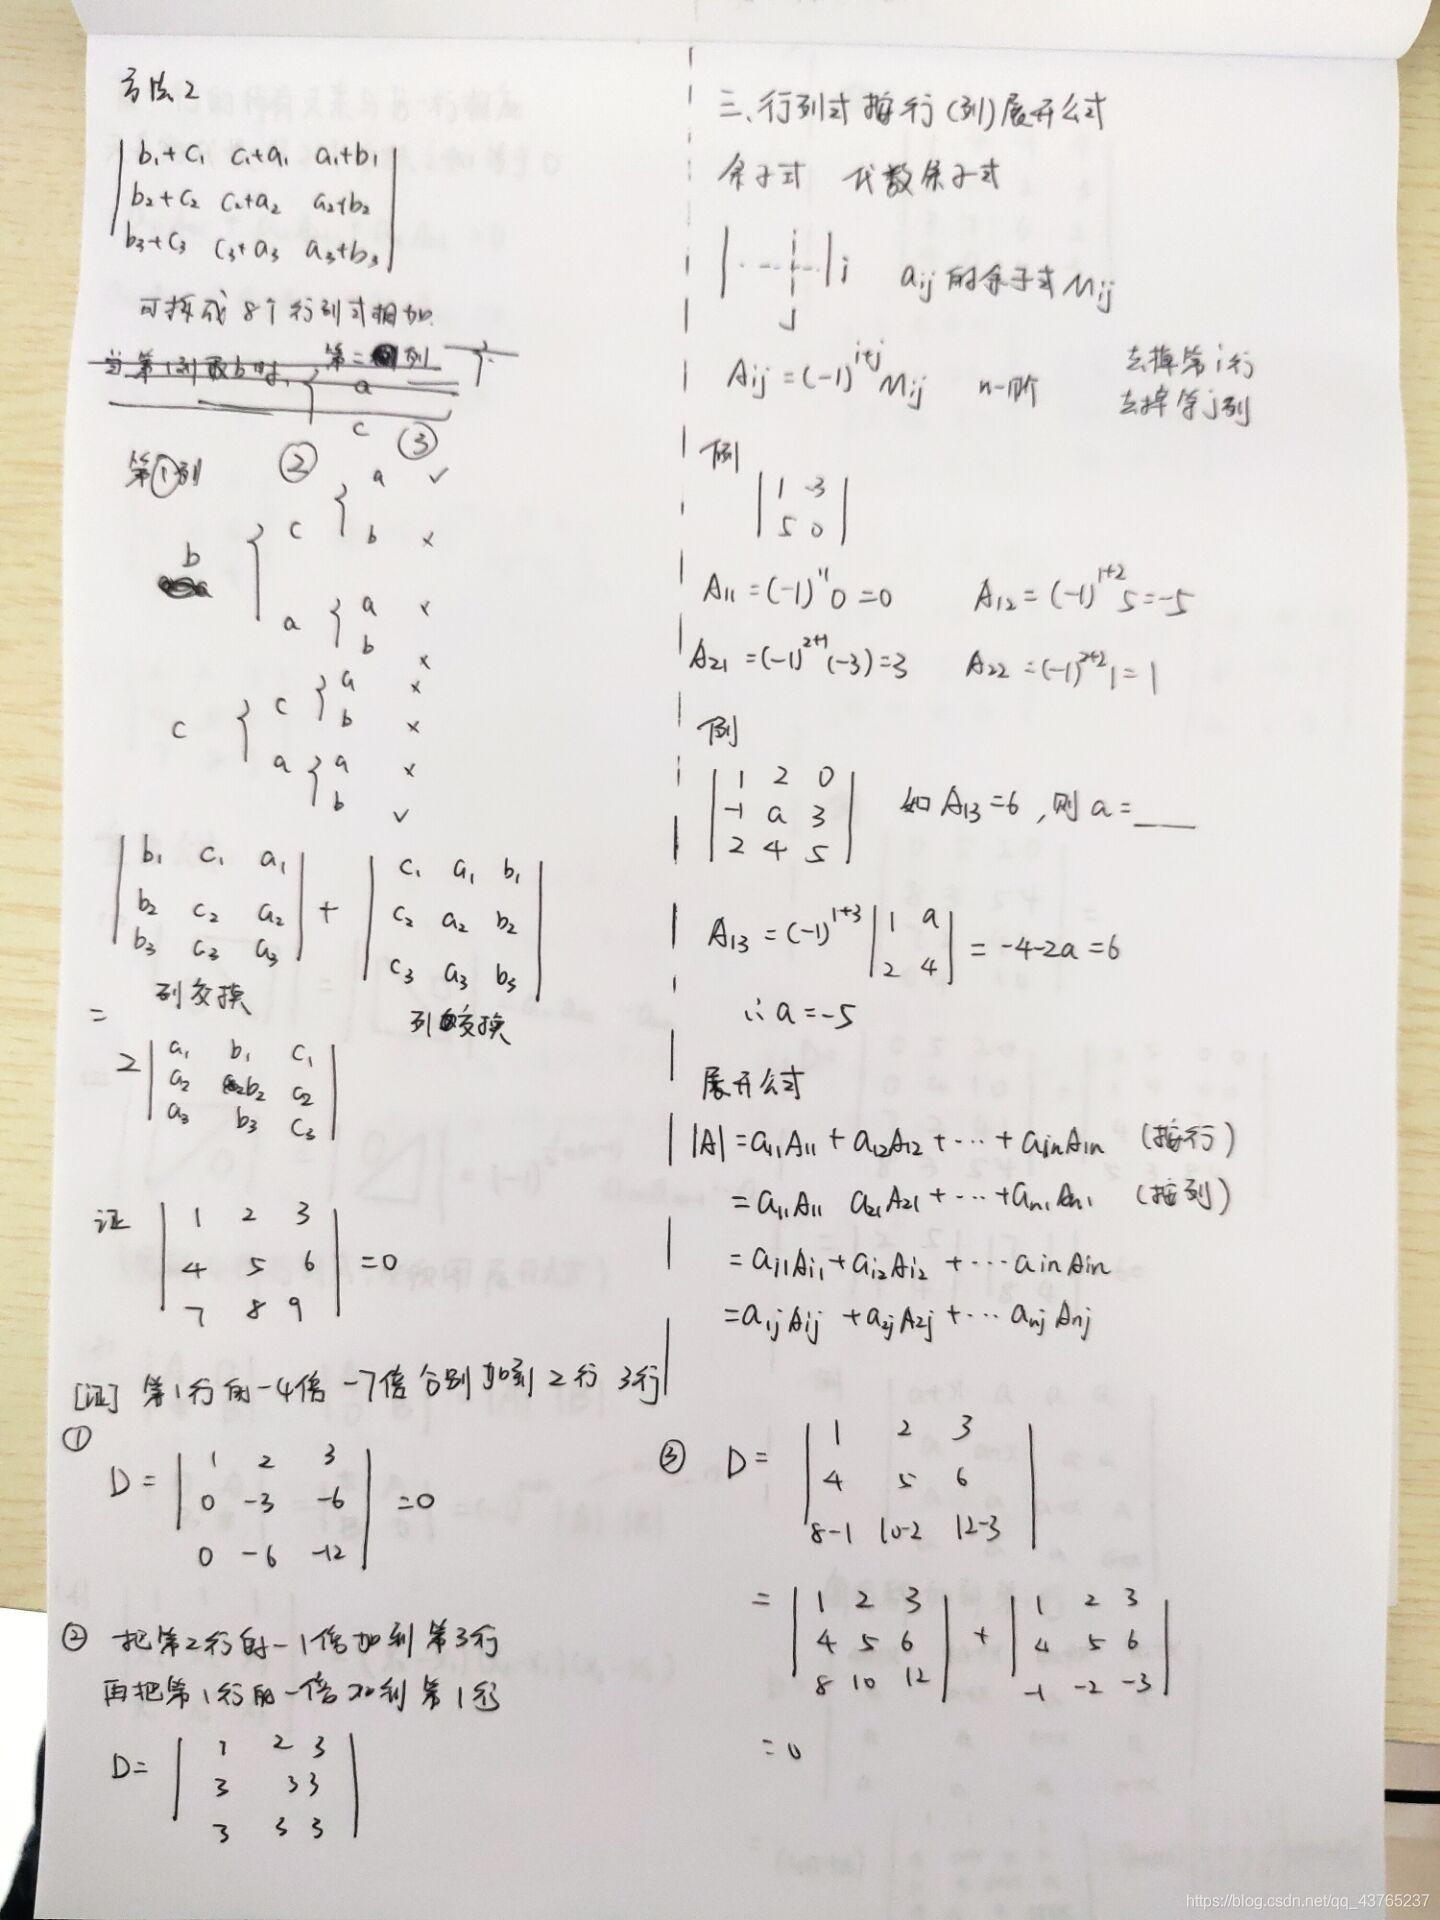 方法2
| b₁+c₁ c₁+a₁ a₁+b₁ |
| b₂+c₂ c₂+a₂ a₂+b₂ |
| b₃+c₃ c₃+a₃ a₃+b₃ |
可拆成 8个行列式相加.
当第1列取b时, { 第二列
a
c
第①列 ② ③
b { c { a ✓
b ×
a { a ×
b ×
c { c { a ×
b ×
a { a ×
b ✓
| b₁ c₁ a₁ | + | c₁ a₁ b₁ |
| b₂ c₂ a₂ | | c₂ a₂ b₂ |
| b₃ c₃ a₃ | | c₃ a₃ b₃ |
列交换 列交换
=
2 | a₁ b₁ c₁ |
| a₂ b₂ c₂ |
| a₃ b₃ c₃ |
证 | 1 2 3 |
| 4 5 6 | =0
| 7 8 9 |
[证] 第1行的-4倍 -7倍分别加到2行 3行
①
D= | 1 2 3 |
| 0 -3 -6 | =0
| 0 -6 -12 |
② 把第2行的-1倍加到第3行
再把第1行的-倍加到第1行
D= | 1 2 3 |
| 3 3 3 |
| 3 3 3 |
三、行列式按行(列)展开公式
余子式 代数余子式
| | i aᵢⱼ的余子式Mᵢⱼ
j
Aᵢⱼ=(-1)ⁱ⁺ʲMᵢⱼ n-1阶 去掉第i行
去掉第j列
例
| 1 -3 |
| 5 0 |
A₁₁=(-1)¹¹0=0 A₁₂=(-1)¹⁺²5=-5
A₂₁=(-1)²⁺¹(-3)=3 A₂₂=(-1)²⁺²1=1
例
| 1 2 0 |
| -1 a 3 | 如A₁₃=6,则a=___
| 2 4 5 |
A₁₃=(-1)¹⁺³ | 1 a | = -4-2a=6
| 2 4 |
∴a=-5
展开公式
|A|=a₁₁A₁₁+a₁₂A₁₂+⋯+a₁ₙA₁ₙ (按行)
=a₁₁A₁₁ a₂₁A₂₁+⋯+aₙ₁Aₙ₁ (按列)
=aᵢ₁Aᵢ₁+aᵢ₂Aᵢ₂+⋯aᵢₙAᵢₙ
=a₁ⱼAᵢⱼ+a₂ⱼA₂ⱼ+⋯aₙⱼAₙⱼ
③ D= | 1 2 3 |
| 4 5 6 |
| 8-1 10-2 12-3 |
= | 1 2 3 | + | 1 2 3 |
| 4 5 6 | | 4 5 6 |
| 8 10 12 | | -1 -2 -3 |
=0
https://blog.csdn.net/qq_43765237